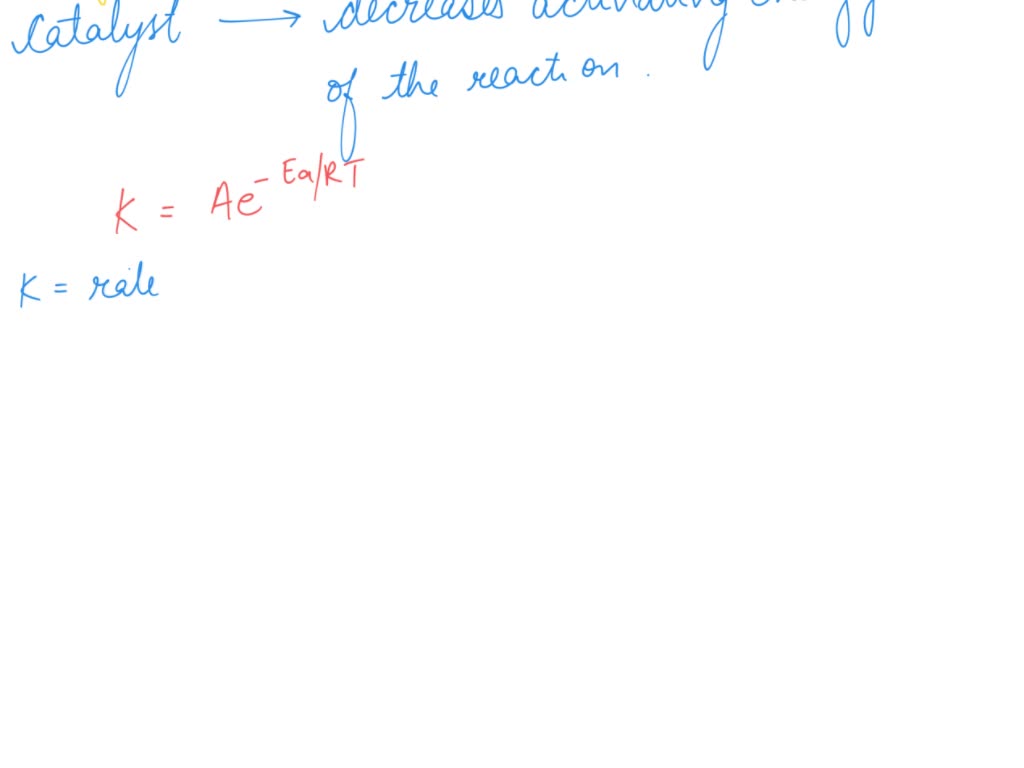 Catalyst → decreases activating energy
of the reaction.
K = Ae^-Ea/RT
K = rate